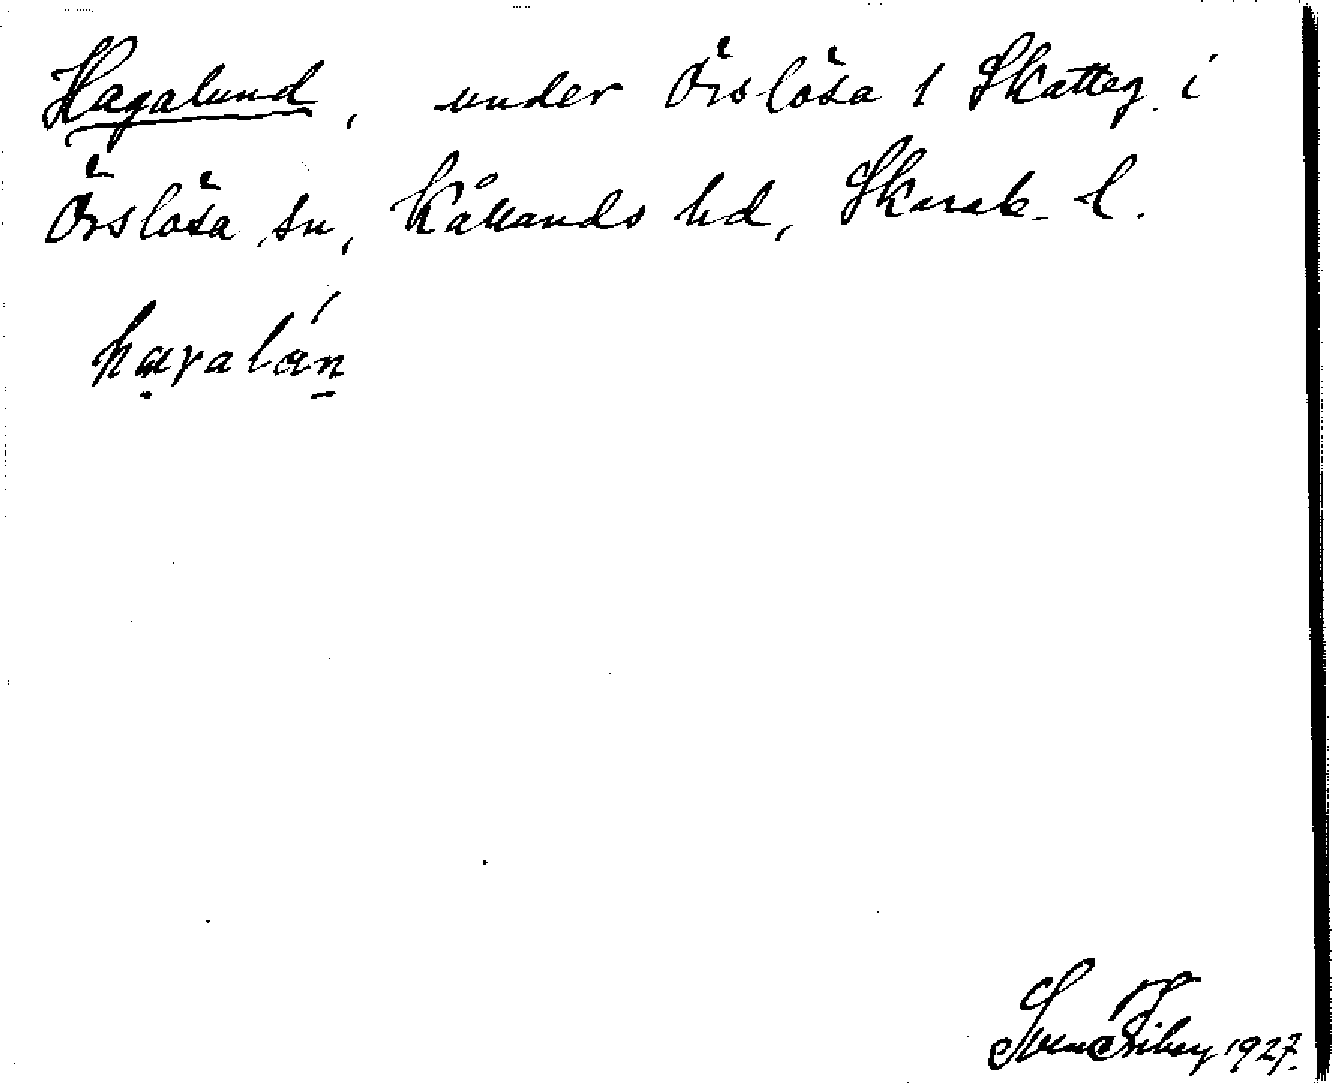 Hagalund, under Örslösa 1 Skatteg. i
Örslösa sn, Kållands hd, Skarab. l.
Sven Fiberg 1927.